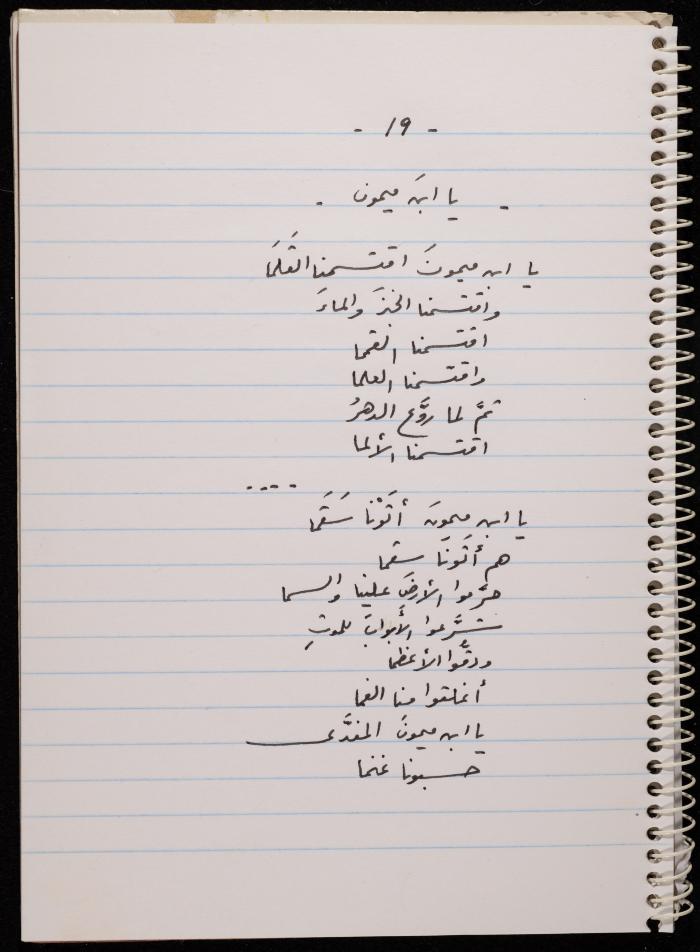 - ١٩ -
- يا ابنَ ميمون .
يا ابن ميمونَ اقتسمنا القَلَمَا
واقتسمنا الخبزَ والماءَ
اقتسمنا القمما
واقتسمنا العلما
ثمَّ لما روَّع الدهرُ
اقتسمنا الألما
....
يا ابن ميمونَ أتَوْنا سَقَما
هم أتَونَا سقما
حرَّموا الأرضَ علينا والسما
شرَّعوا الأبوابَ للموتِ
ودقُّوا الأعظما
أغلقوا منا الفما
يا ابن ميمونَ المفدَّى
حسبونا غنما